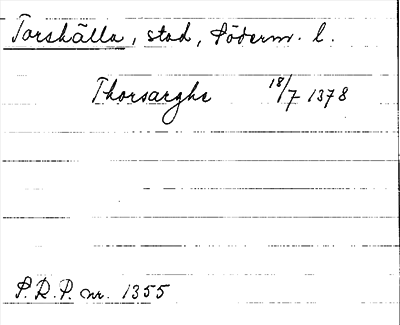 Torshälla, stad, Söderm. l.
Thorsarghe 18/7 1378
P.R.P. nr. 1355